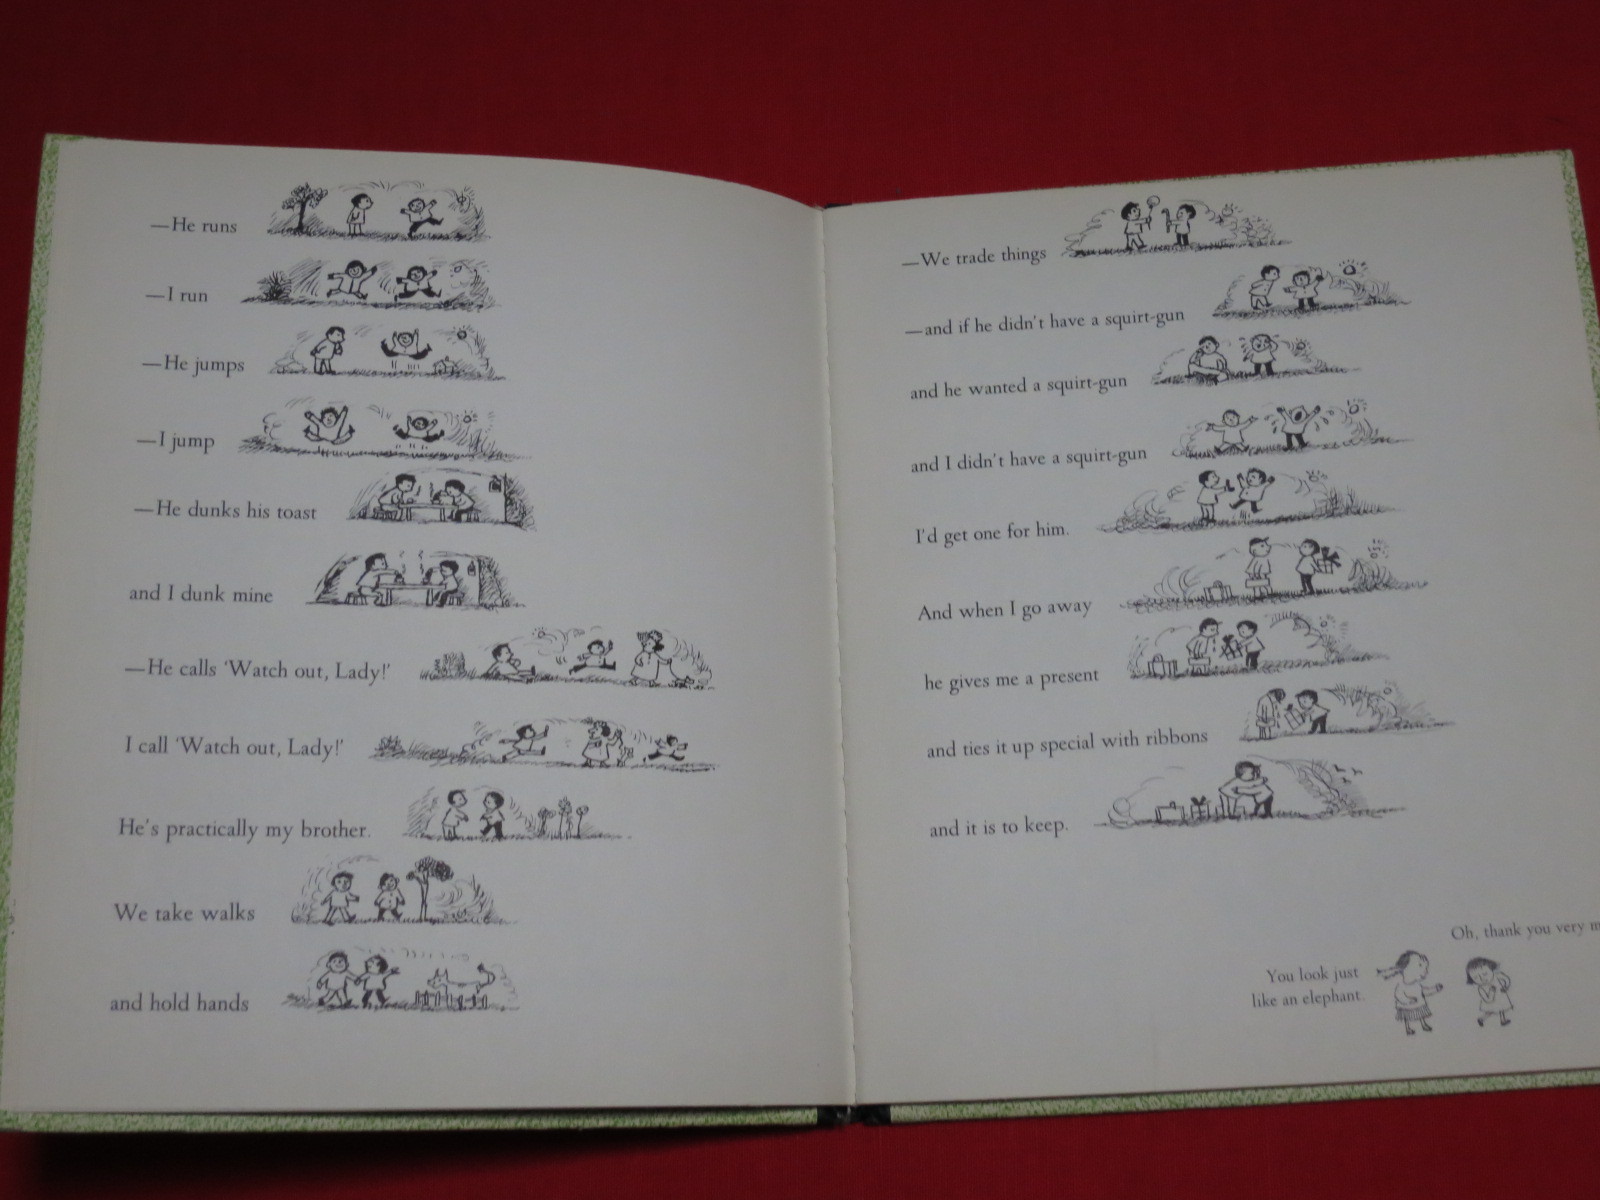 —He runs
—I run
—He jumps
—I jump
—He dunks his toast
and I dunk mine
—He calls 'Watch out, Lady!'
I call 'Watch out, Lady!'
He's practically my brother.
We take walks
and hold hands
—We trade things
—and if he didn't have a squirt-gun
and he wanted a squirt-gun
and I didn't have a squirt-gun
I'd get one for him.
And when I go away
he gives me a present
and ties it up special with ribbons
and it is to keep.
Oh, thank you very
You look just
like an elephant.